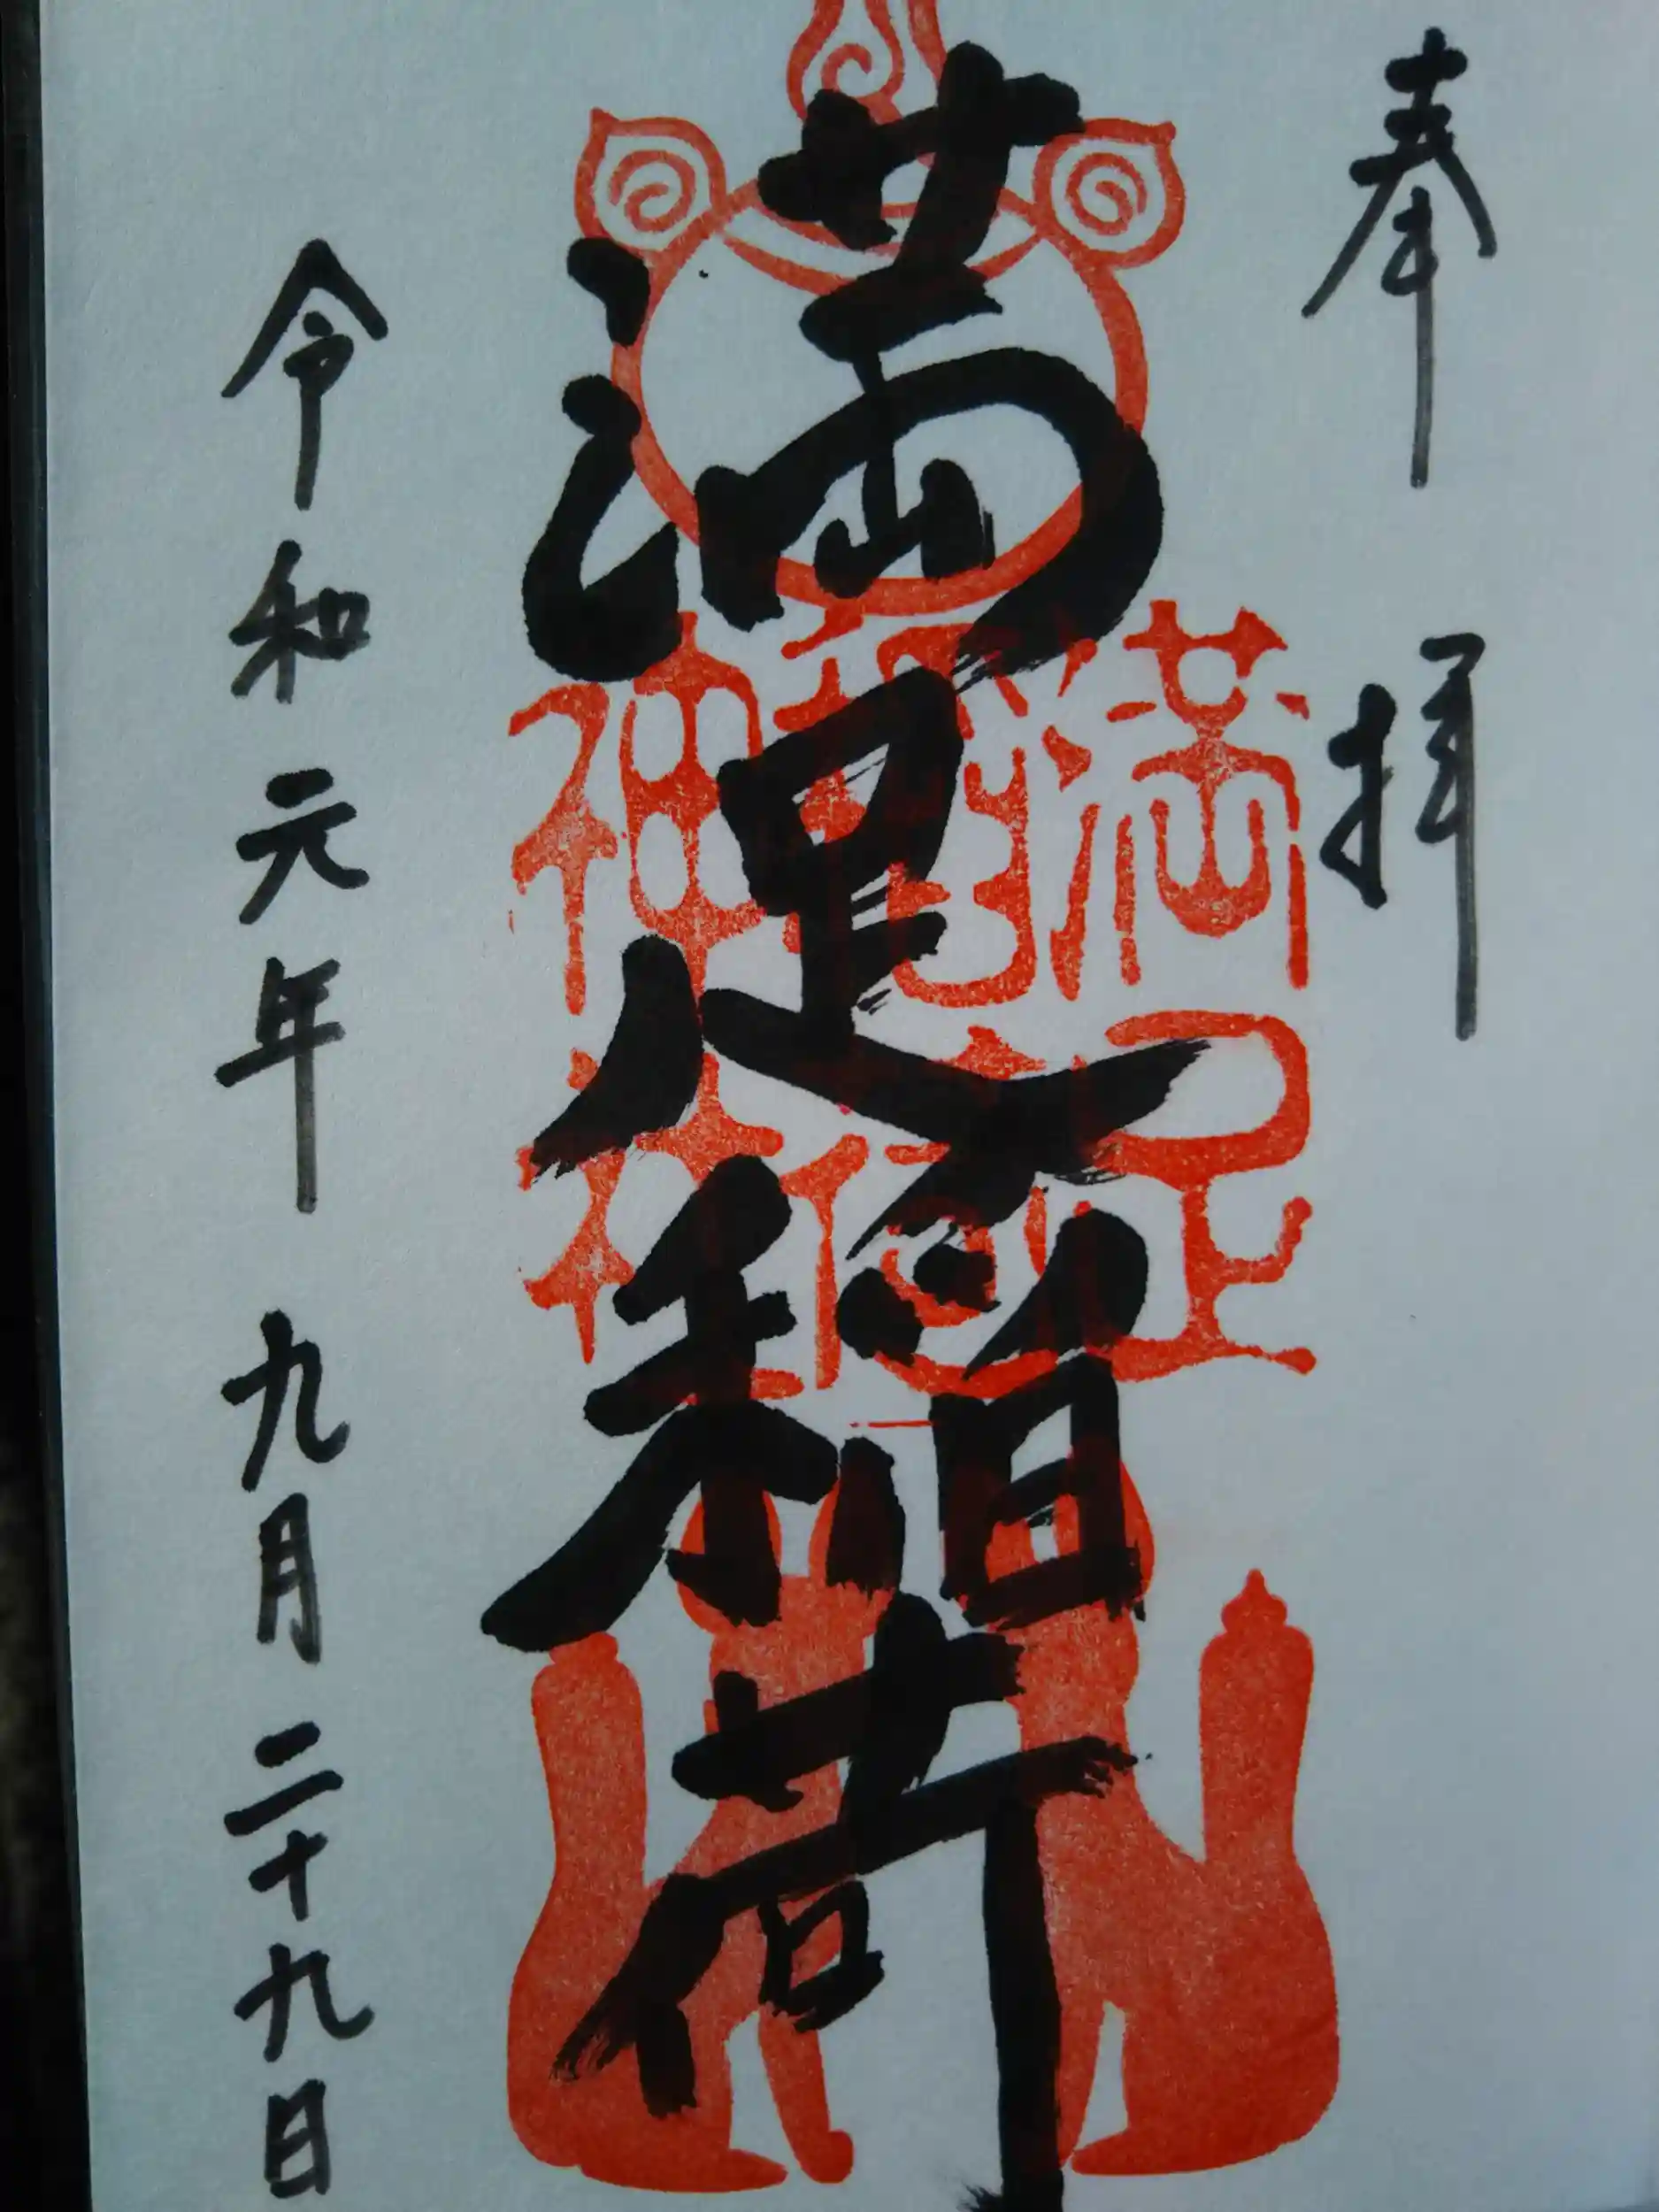 奉拝
満足稲荷
令和元年 九月二十九日
満足
稲荷
神社